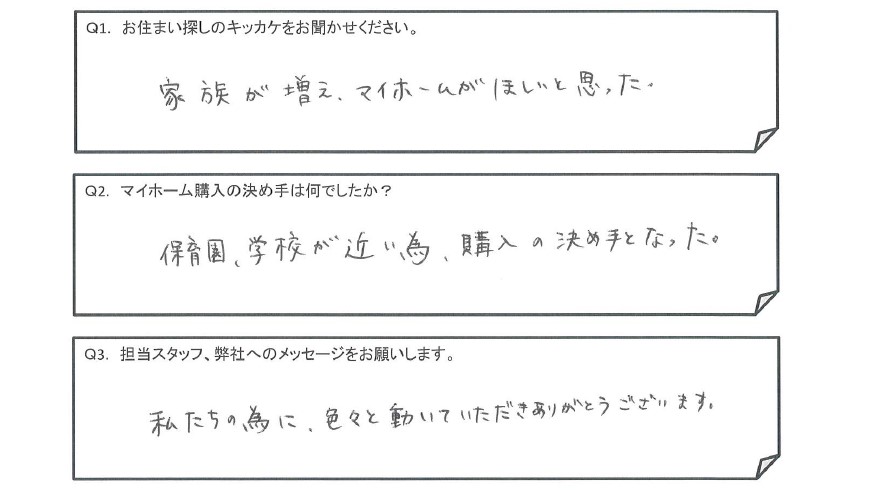 Q1. お住まい探しのキッカケをお聞かせください。
家族が増え、マイホームがほしいと思った。
Q2. マイホーム購入の決め手は何でしたか？
保育園、学校が近い為、購入の決め手となった。
Q3. 担当スタッフ、弊社へのメッセージをお願いします。
私たちの為に、色々と動いていただきありがとうございます。